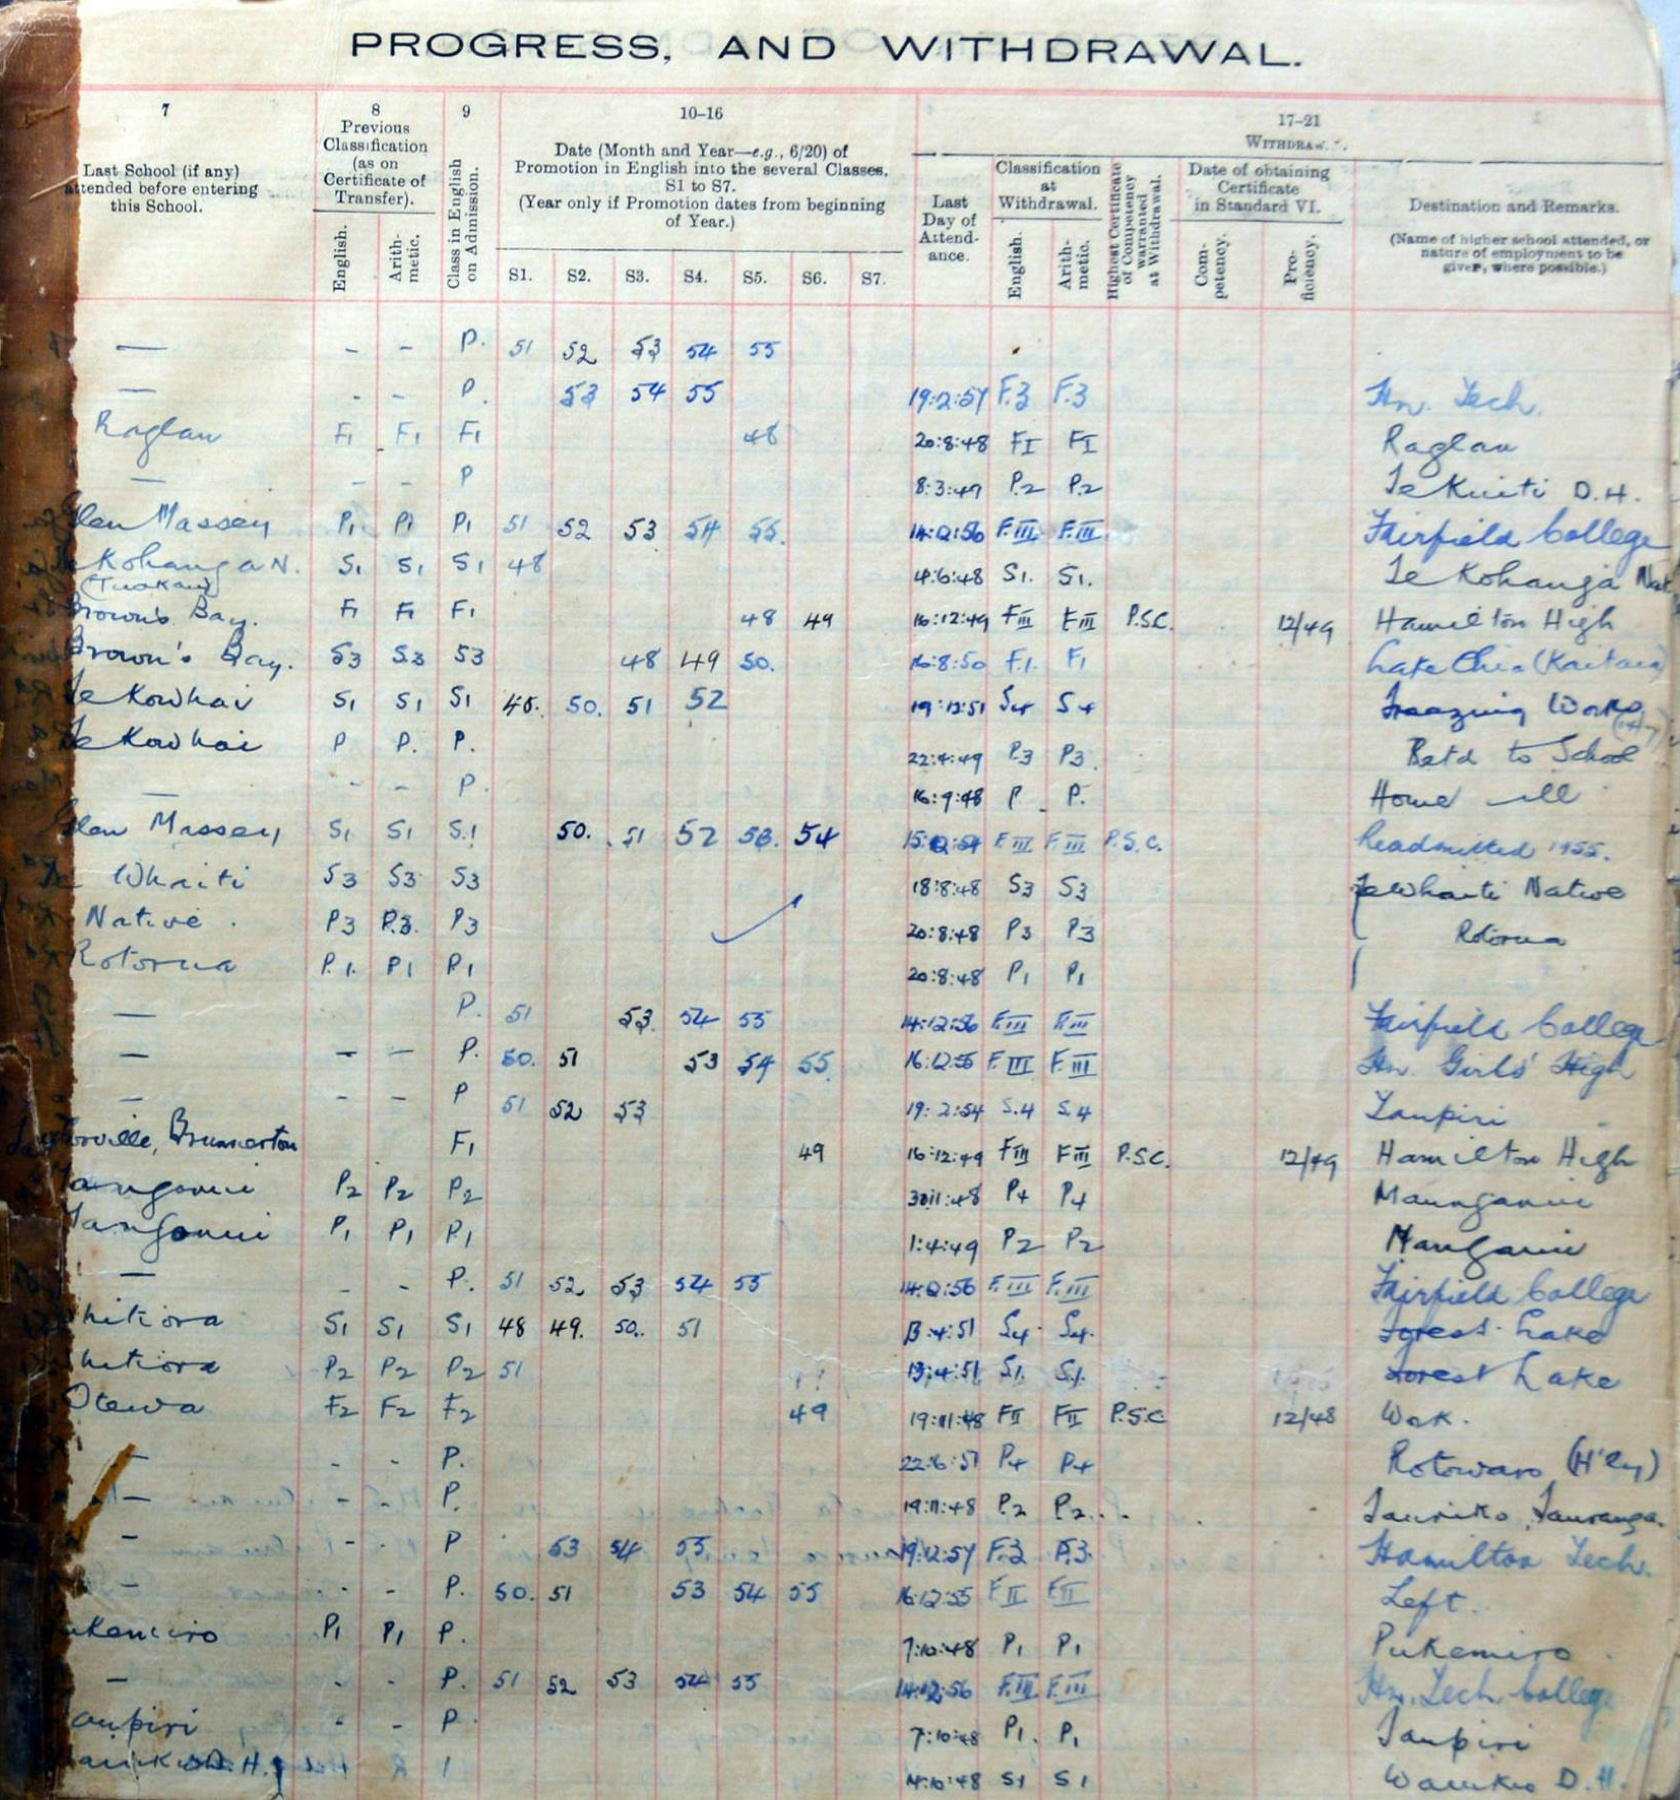 PROGRESS, AND WITHDRAWAL.
7 8 9 10–16 17–21
Last School (if any) attended before entering this School.
Previous Classification (as on Certificate of Transfer).
English. Arith-metic.
Class in English on Admission.
Date (Month and Year—e.g., 6/20) of Promotion in English into the several Classes, S1 to S7.
(Year only if Promotion dates from beginning of Year.)
S1. S2. S3. S4. S5. S6. S7.
Last Day of Attend-ance.
Classification at Withdrawal.
English. Arith-metic.
Highest Certificate of Competency warranted at Withdrawal.
Date of obtaining Certificate in Standard VI.
Com-petency. Pro-ficiency.
Destination and Remarks.
(Name of higher school attended, or nature of employment to be given, where possible.)
— - - P. 51 52 53 54 55
— - - P. 53 54 55 19:2:57 F.3 F.3 Hn. Tech.
Raglan F1 F1 F1 48 20:8:48 FI FI Raglan
— - - P 8:3:49 P.2 P.2 Te Kuiti D.H.
Glen Massey P1 P1 P1 51 52 53 54 55. 14:12:56 F.III F.III Fairfield College
Te Kohanga N. S1 S1 S1 48 4:6:48 S1. S1. Te Kohanga Nat
(Tuakau)
Brown's Bay. F1 F1 F1 48 49 16:12:49 FIII FIII P.S.C. 12/49 Hamilton High
Brown's Bay. S3 S3 S3 48 49 50. 16:8:50 F.1. F1 Lake Ohia (Kaitaia)
Te Kowhai S1 S1 S1 51 52 19:12:51 S4 S4 Freezing Works
Te Kowhai P P. P. 22:4:49 P.3 P3. Retd to School
— - - P. 16:9:48 P P. Home ill
Glen Massey S1 S1 S.1 50. 51 52 53. 54 F III F III P.S.C. Readmitted 1955.
Te Whaiti S3 S3 S3 18:8:48 S3 S3 Te Whaiti Native
Native. P3 P.3. P3 20:8:48 P3 P3 Rotorua
Rotorua P.1. P1 P1 20:8:48 P1 P1
— P. 51 53. 54 55 14:12:56 F.III F.III Fairfield College
— — — P. 50. 51 53 54 55. 16:12:55 F.III F.III Hn. Girls' High
— - - P 51 52 53 19:2:54 S.4 S.4 Taupiri
Brunnerton F1 49 16:12:49 FIII FIII P.S.C. 12/49 Hamilton High
P2 P2 P2 30:11:48 P4 P4 Maunganui
P1 P1 P1 1:4:49 P2 P2
— - - P. 51 52. 53 54 55 14:12:56 F.III F.III Fairfield College
Whitiora S1 S1 S1 48 49. 50. 51 13:4:51 S4 S4. Forest Lake
Whitiora P2 P2 P2 51 13:4:51 S1. S1. Forest Lake
Otewa F2 F2 F2 49 19:11:48 FII FII P.S.C 12/48 Work.
— - - P. 22:6:51 P4 P4 Rotowaro (H'ly)
— - - P. 19:11:48 P.2 P2 Tauriko, Tauranga.
— - - P 53 54 55 F.3 F.3. Hamilton Tech.
— - - P. 50. 51 53 54 55 16:12:55 FII FII Left.
Pukemiro P1 P1 P. 7:10:48 P1 P1 Pukemiro
— - - P. 51 52 53 54 55 14:12:56 F.III F.III Hn. Tech College
Taupiri - - P. 7:10:48 P1. P1 Taupiri
D.H. 1 14:10:48 S1 S1 D.H.